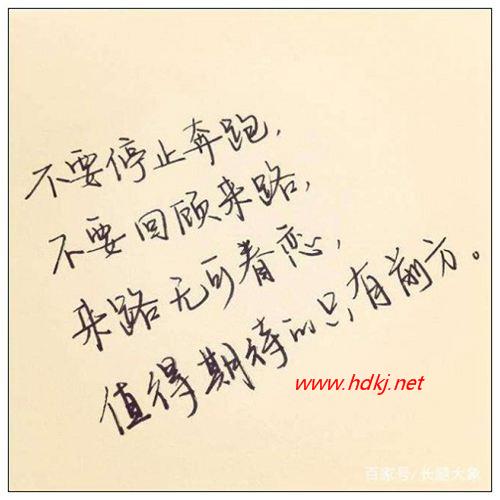 不要停止奔跑,
不要回顾来路,
来路无可眷恋,
值得期待的只有前方。
www.hdkj.net
百家号/长腿大象